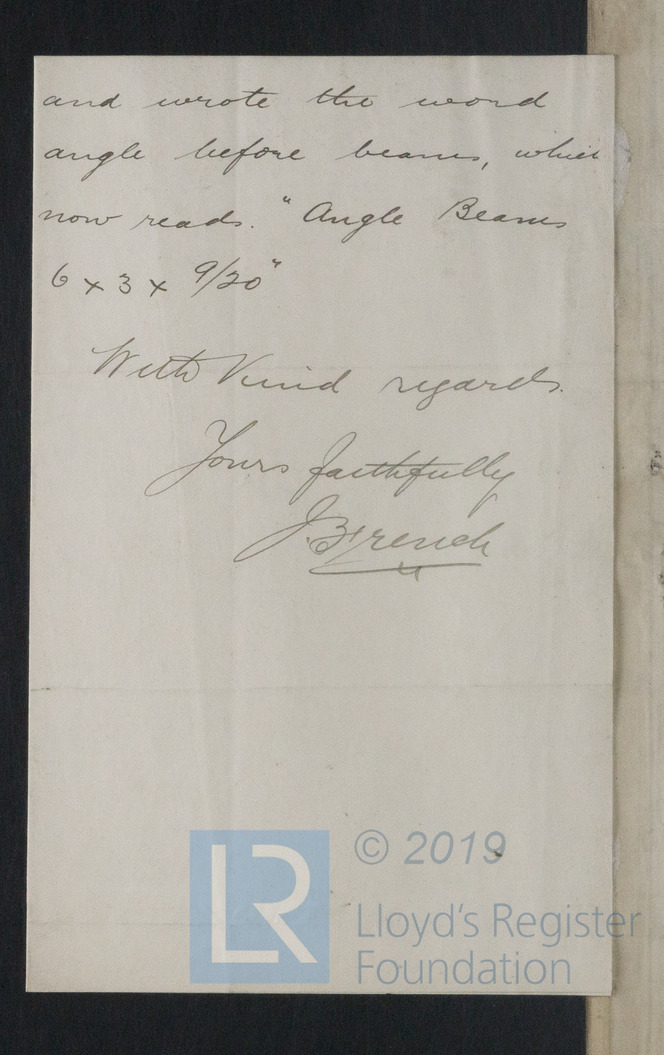 and wrote the word
angle before beams, which
now reads. "Angle Beams
6 x 3 x 9/20"
With Kind regards.
Yours faithfully
J. French
LR
© 2019
Lloyd's Register
Foundation